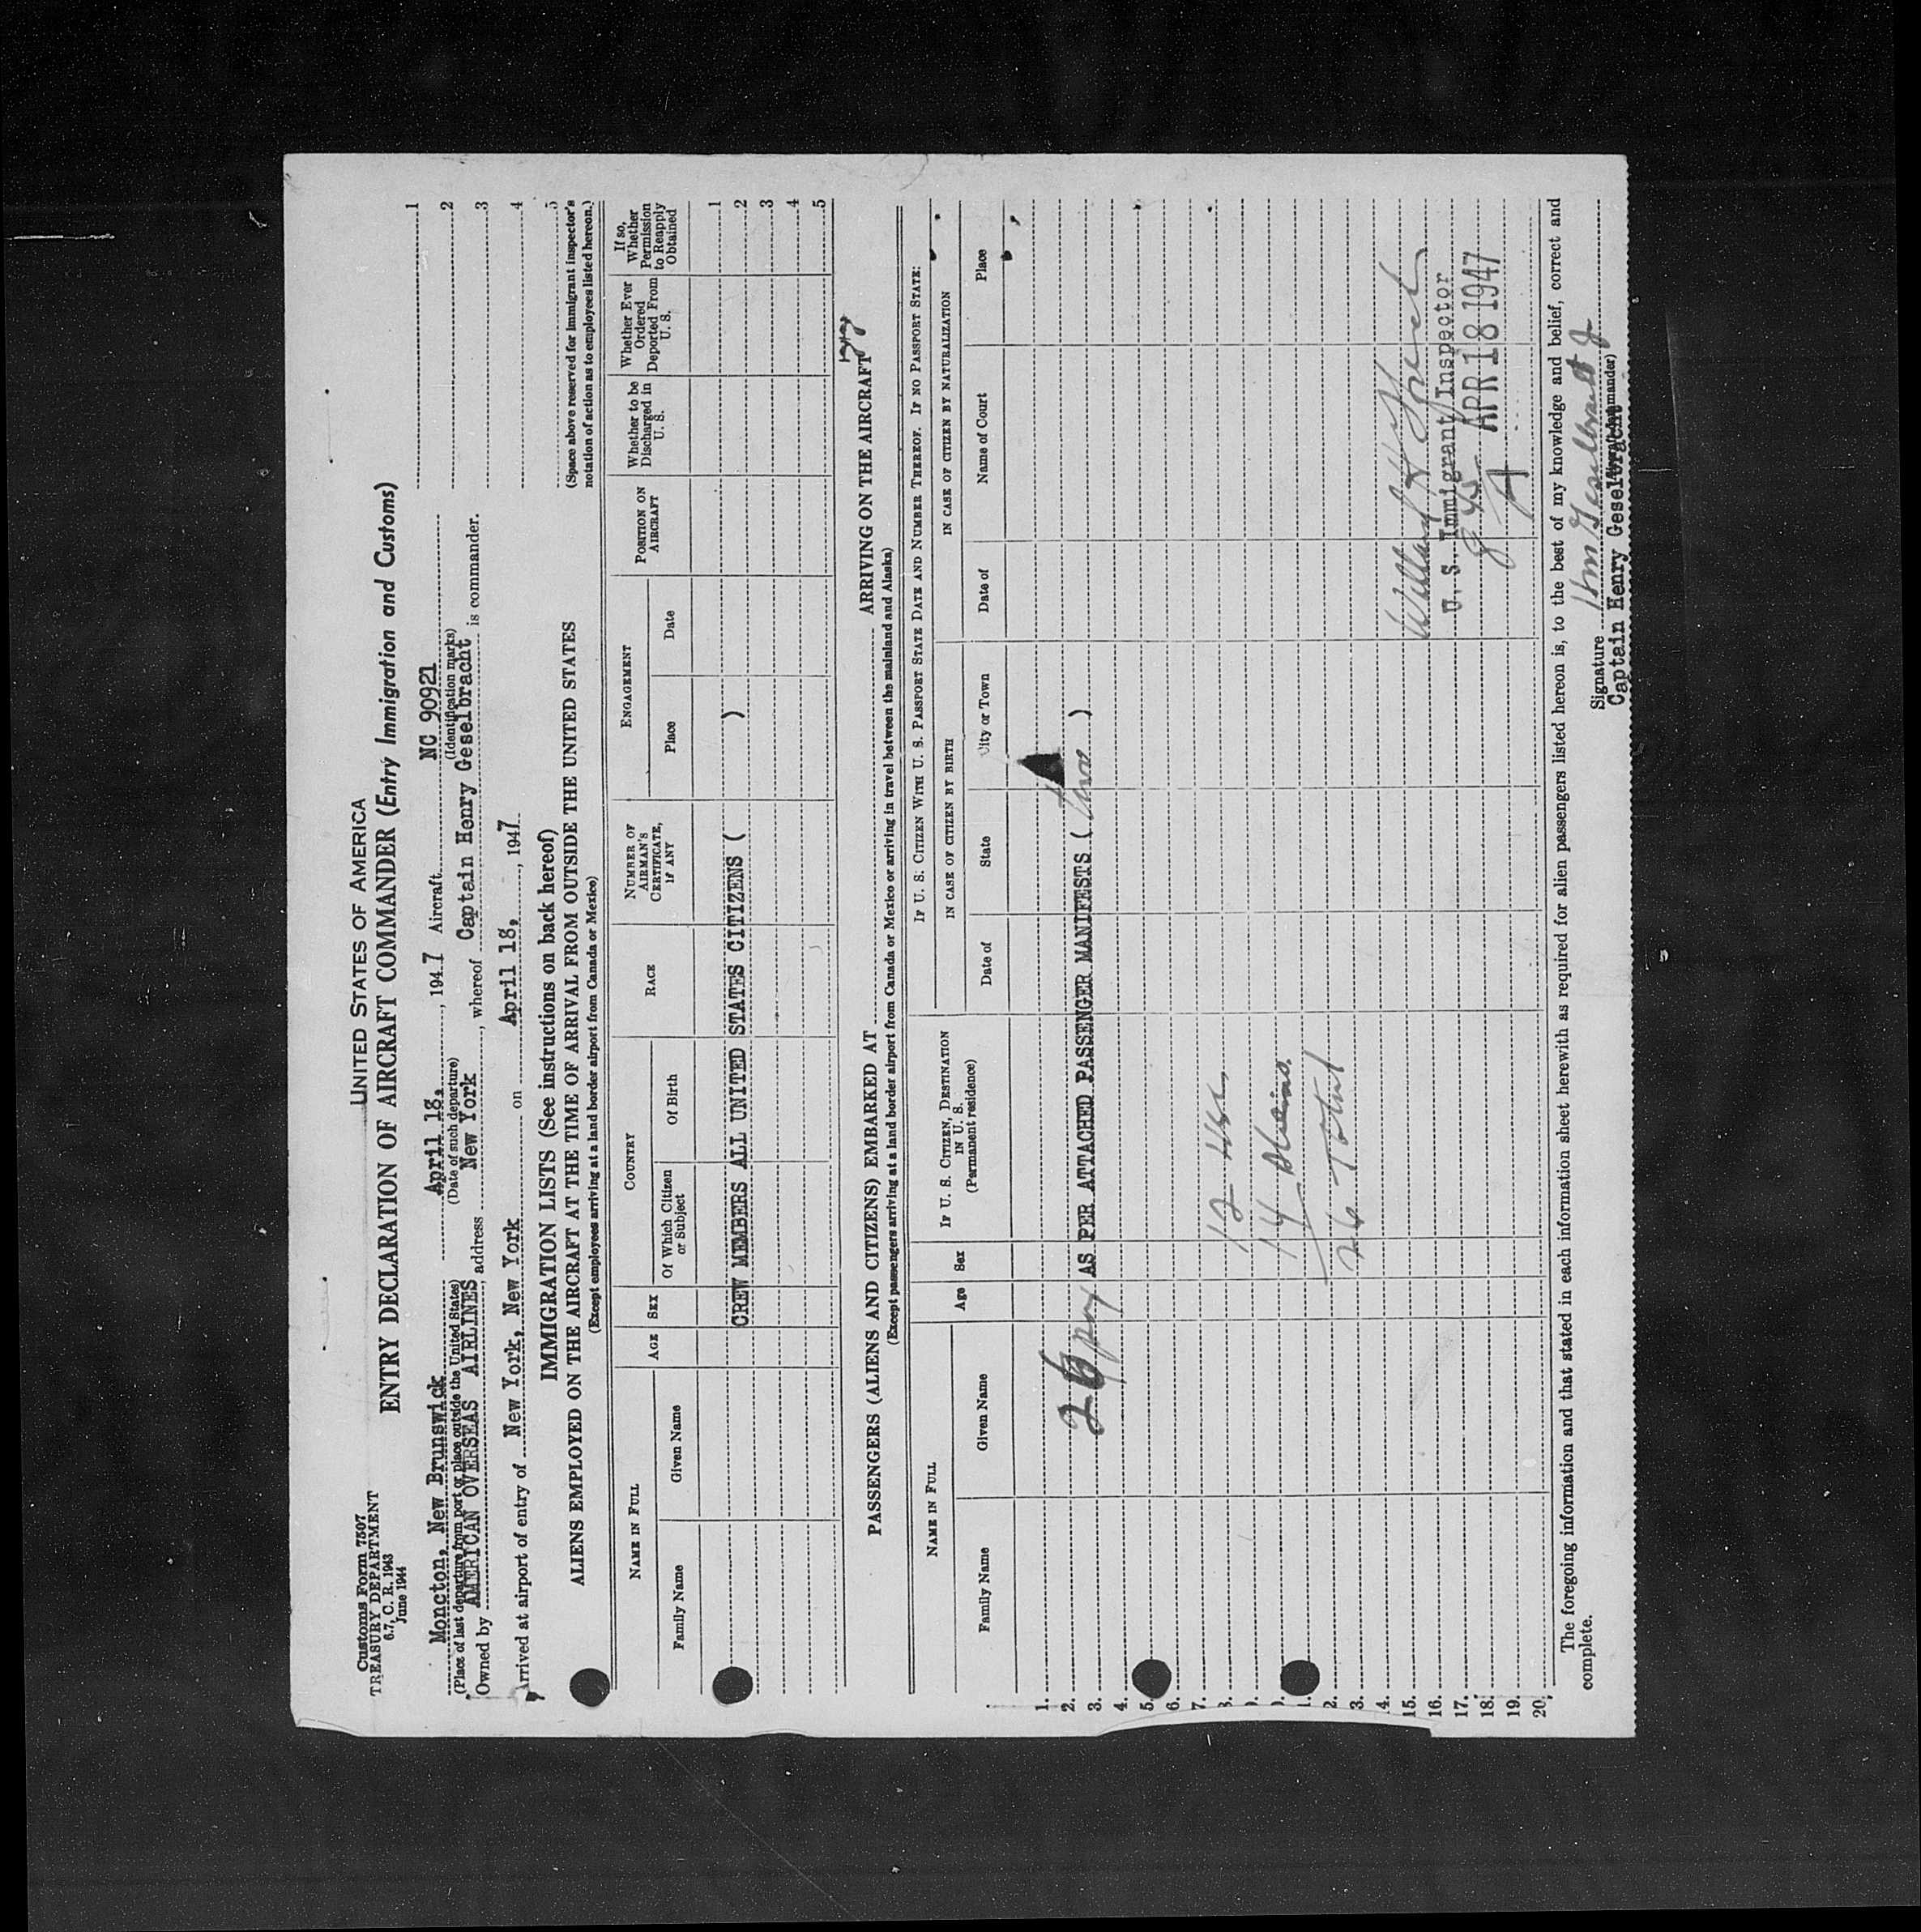 Customs Form 7507
TREASURY DEPARTMENT
6.7, C. R. 1943
June 1944
UNITED STATES OF AMERICA
ENTRY DECLARATION OF AIRCRAFT COMMANDER (Entry Immigration and Customs)
Moncton, New Brunswick April 18, , 1947 Aircraft NC 90921
(Place of last departure from port or place outside the United States) (Date of such departure) (Identification marks)
Owned by AMERICAN OVERSEAS AIRLINES, address New York, whereof Captain Henry Geselbracht is commander.
Arrived at airport of entry of New York, New York on April 18, , 1947
1
2
3
4
5
(Space above reserved for immigrant inspector's
notation of action as to employees listed hereon.)
IMMIGRATION LISTS (See instructions on back hereof)
ALIENS EMPLOYED ON THE AIRCRAFT AT THE TIME OF ARRIVAL FROM OUTSIDE THE UNITED STATES
(Except employees arriving at a land border airport from Canada or Mexico)
NAME IN FULL
Family Name
Given Name
AGE
SEX
COUNTRY
Of Which Citizen or Subject
Of Birth
RACE
NUMBER OF AIRMAN'S CERTIFICATE, IF ANY
ENGAGEMENT
Place
Date
POSITION ON AIRCRAFT
Whether to be Discharged in U. S.
Whether Ever Ordered Deported From U. S.
If so, Whether Permission to Reapply Obtained
CREW MEMBERS ALL UNITED STATES CITIZENS ( )
1
2
3
4
5
PASSENGERS (ALIENS AND CITIZENS) EMBARKED AT ARRIVING ON THE AIRCRAFT
(Except passengers arriving at a land border airport from Canada or Mexico or arriving in travel between the mainland and Alaska)
NAME IN FULL
Family Name
Given Name
Age
Sex
IF U. S. CITIZEN, DESTINATION IN U. S.
(Permanent residence)
IF U. S. CITIZEN WITH U. S. PASSPORT STATE DATE AND NUMBER THEREOF. IF NO PASSPORT STATE:
IN CASE OF CITIZEN BY BIRTH
Date of
State
City or Town
IN CASE OF CITIZEN BY NATURALIZATION
Date of
Name of Court
Place
1.
2.
26 AS PER ATTACHED PASSENGER MANIFESTS ( )
3.
4.
5.
6.
7.
12 USC
14 Aliens
26 Total
15.
16.
17.
18.
19.
20.
U. S. Immigrant Inspector
APR 18 1947
The foregoing information and that stated in each information sheet herewith as required for alien passengers listed hereon is, to the best of my knowledge and belief, correct and
complete.
Signature
Captain Henry Geselbracht